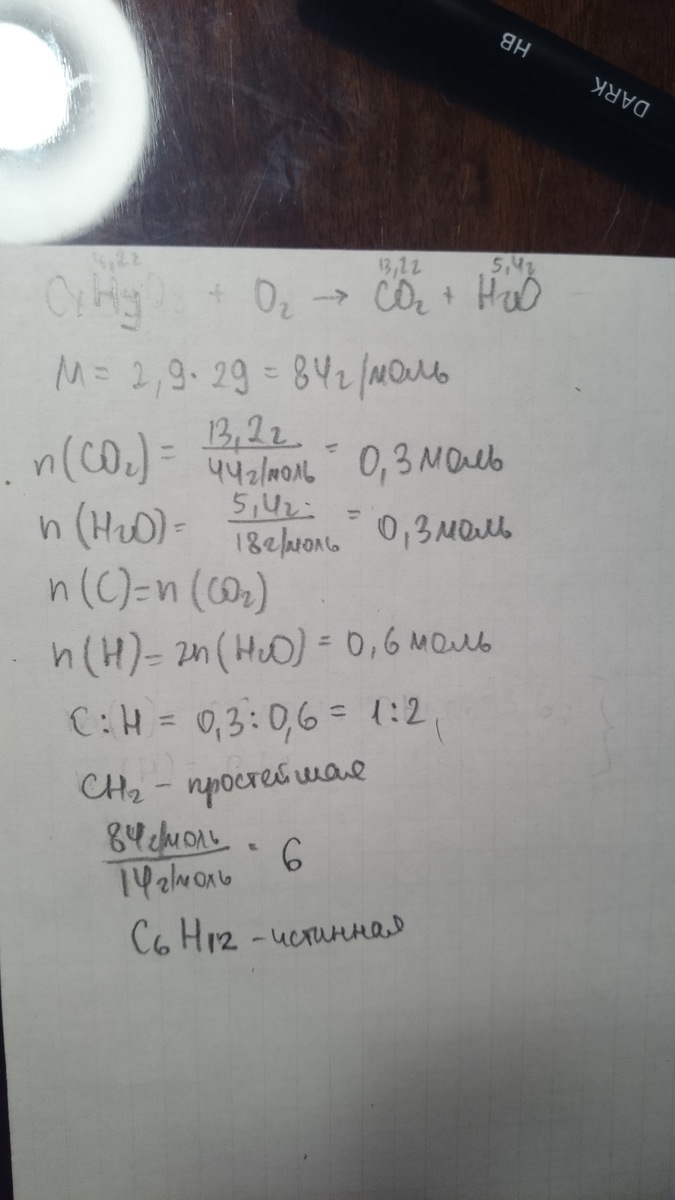 HB
DARK
4,2г 13,2г 5,4г
CxHy + O₂ → CO₂ + H₂O
M = 2,9 · 29 = 84г/моль
n(CO₂) = 13,2г / 44г/моль = 0,3моль
n(H₂O) = 5,4г / 18г/моль = 0,3моль
n(C)=n(CO₂)
n(H)= 2n(H₂O) = 0,6 моль
C:H = 0,3:0,6 = 1:2
CH₂ – простейшая
84г/моль / 14г/моль = 6
C₆H₁₂ – истинная